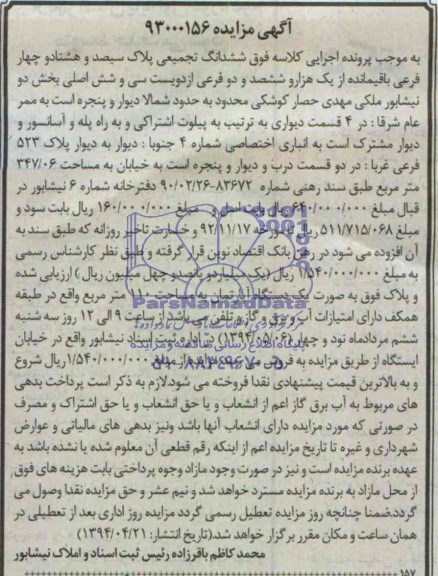 آگهی مزایده ۹۳۰۰۰۱۵۶
به موجب پرونده اجرایی کلاسه فوق ششدانگ تجمیعی پلاک سیصد و هشتادو چهار
فرعی باقیمانده از یک هزارو ششصد و دو فرعی ازدویست سی و شش اصلی بخش دو
نیشابور ملکی مهدی حصار کوشکی محدود به حدود شمالا دیوار و پنجره است به ممر
عام شرقا : در ۴ قسمت دیواری به ترتیب به پیلوت اشتراکی و به راه پله و آسانسور و
دیوار مشترک است به انباری اختصاصی شماره ۴ جنوبا : دیوار به دیوار پلاک ۵۲۳
فرعی غربا : در دو قسمت درب و دیوار و پنجره است به خیابان به مساحت ۳۴۷/۰۶
متر مربع طبق سند رهنی شماره ۸۳۶۷۲-۹۰/۰۲/۲۶ دفترخانه شماره ۶ نیشابور در
قبال مبلغ ۶۴۰/۰۰۰/۰۰۰ ریال مبلغ ۱۶۰/۰۰۰/۰۰۰ ریال بابت سود و
مبلغ ۵۱۱/۷۱۵/۰۶۸ ریال ۹۲/۱۱/۱۷ و خسارت تاخیر روزانه که طبق سند به
آن افزوده می شود در رهن بانک اقتصاد نوین قرار گرفته و طبق نظر کارشناس رسمی
به مبلغ ۱/۵۴۰/۰۰۰/۰۰۰ ریال (یک میلیارد و پانصدو چهل میلیون ریال) ارزیابی شده
و پلاک فوق به صورت یک دستگاه آپارتمان به مساحت متر مربع واقع در طبقه
همکف دارای امتیازات آب و برق و گاز و تلفن می باشد از ساعت ۹ الی ۱۲ روز سه شنبه
ششم مردادماه نود و چهار (۱۳۹۴/۰۵/۰۶) در اداره ثبت اسناد نیشابور واقع در خیابان
ایستگاه از طریق مزایده به فروش می مبلغ ۱/۵۴۰/۰۰۰/۰۰۰ ریال شروع
و به بالاترین قیمت پیشنهادی نقدا فروخته می شود.لازم به ذکر است پرداخت بدهی
های مربوط به آب برق گاز اعم از انشعاب و یا حق انشعاب و یا حق اشتراک و مصرف
در صورتی که مورد مزایده دارای انشعاب آنها باشد ونیز بدهی های مالیاتی و عوارض
شهرداری و غیره تا تاریخ مزایده اعم از اینکه رقم قطعی آن معلوم شده یا نشده باشد به
عهده برنده مزایده است و نیز در صورت وجود مازاد وجوه پرداختی بابت هزینه های فوق
از محل مازاد به برنده مزایده مسترد خواهد شد و نیم عشر و حق مزایده نقدا وصول می
گردد.ضمنا چنانچه روز مزایده تعطیل رسمی گردد مزایده روز اداری بعد از تعطیلی در
همان ساعت و مکان مقرر برگزار خواهد شد.(تاریخ انتشار: ۱۳۹۴/۰۴/۲۱)
محمد کاظم باقرزاده رئیس ثبت اسناد و املاک نیشابور
۱۵۷
ParsNamadData
۰۲۱-۸۸۳۴۹۶۷۰-۵